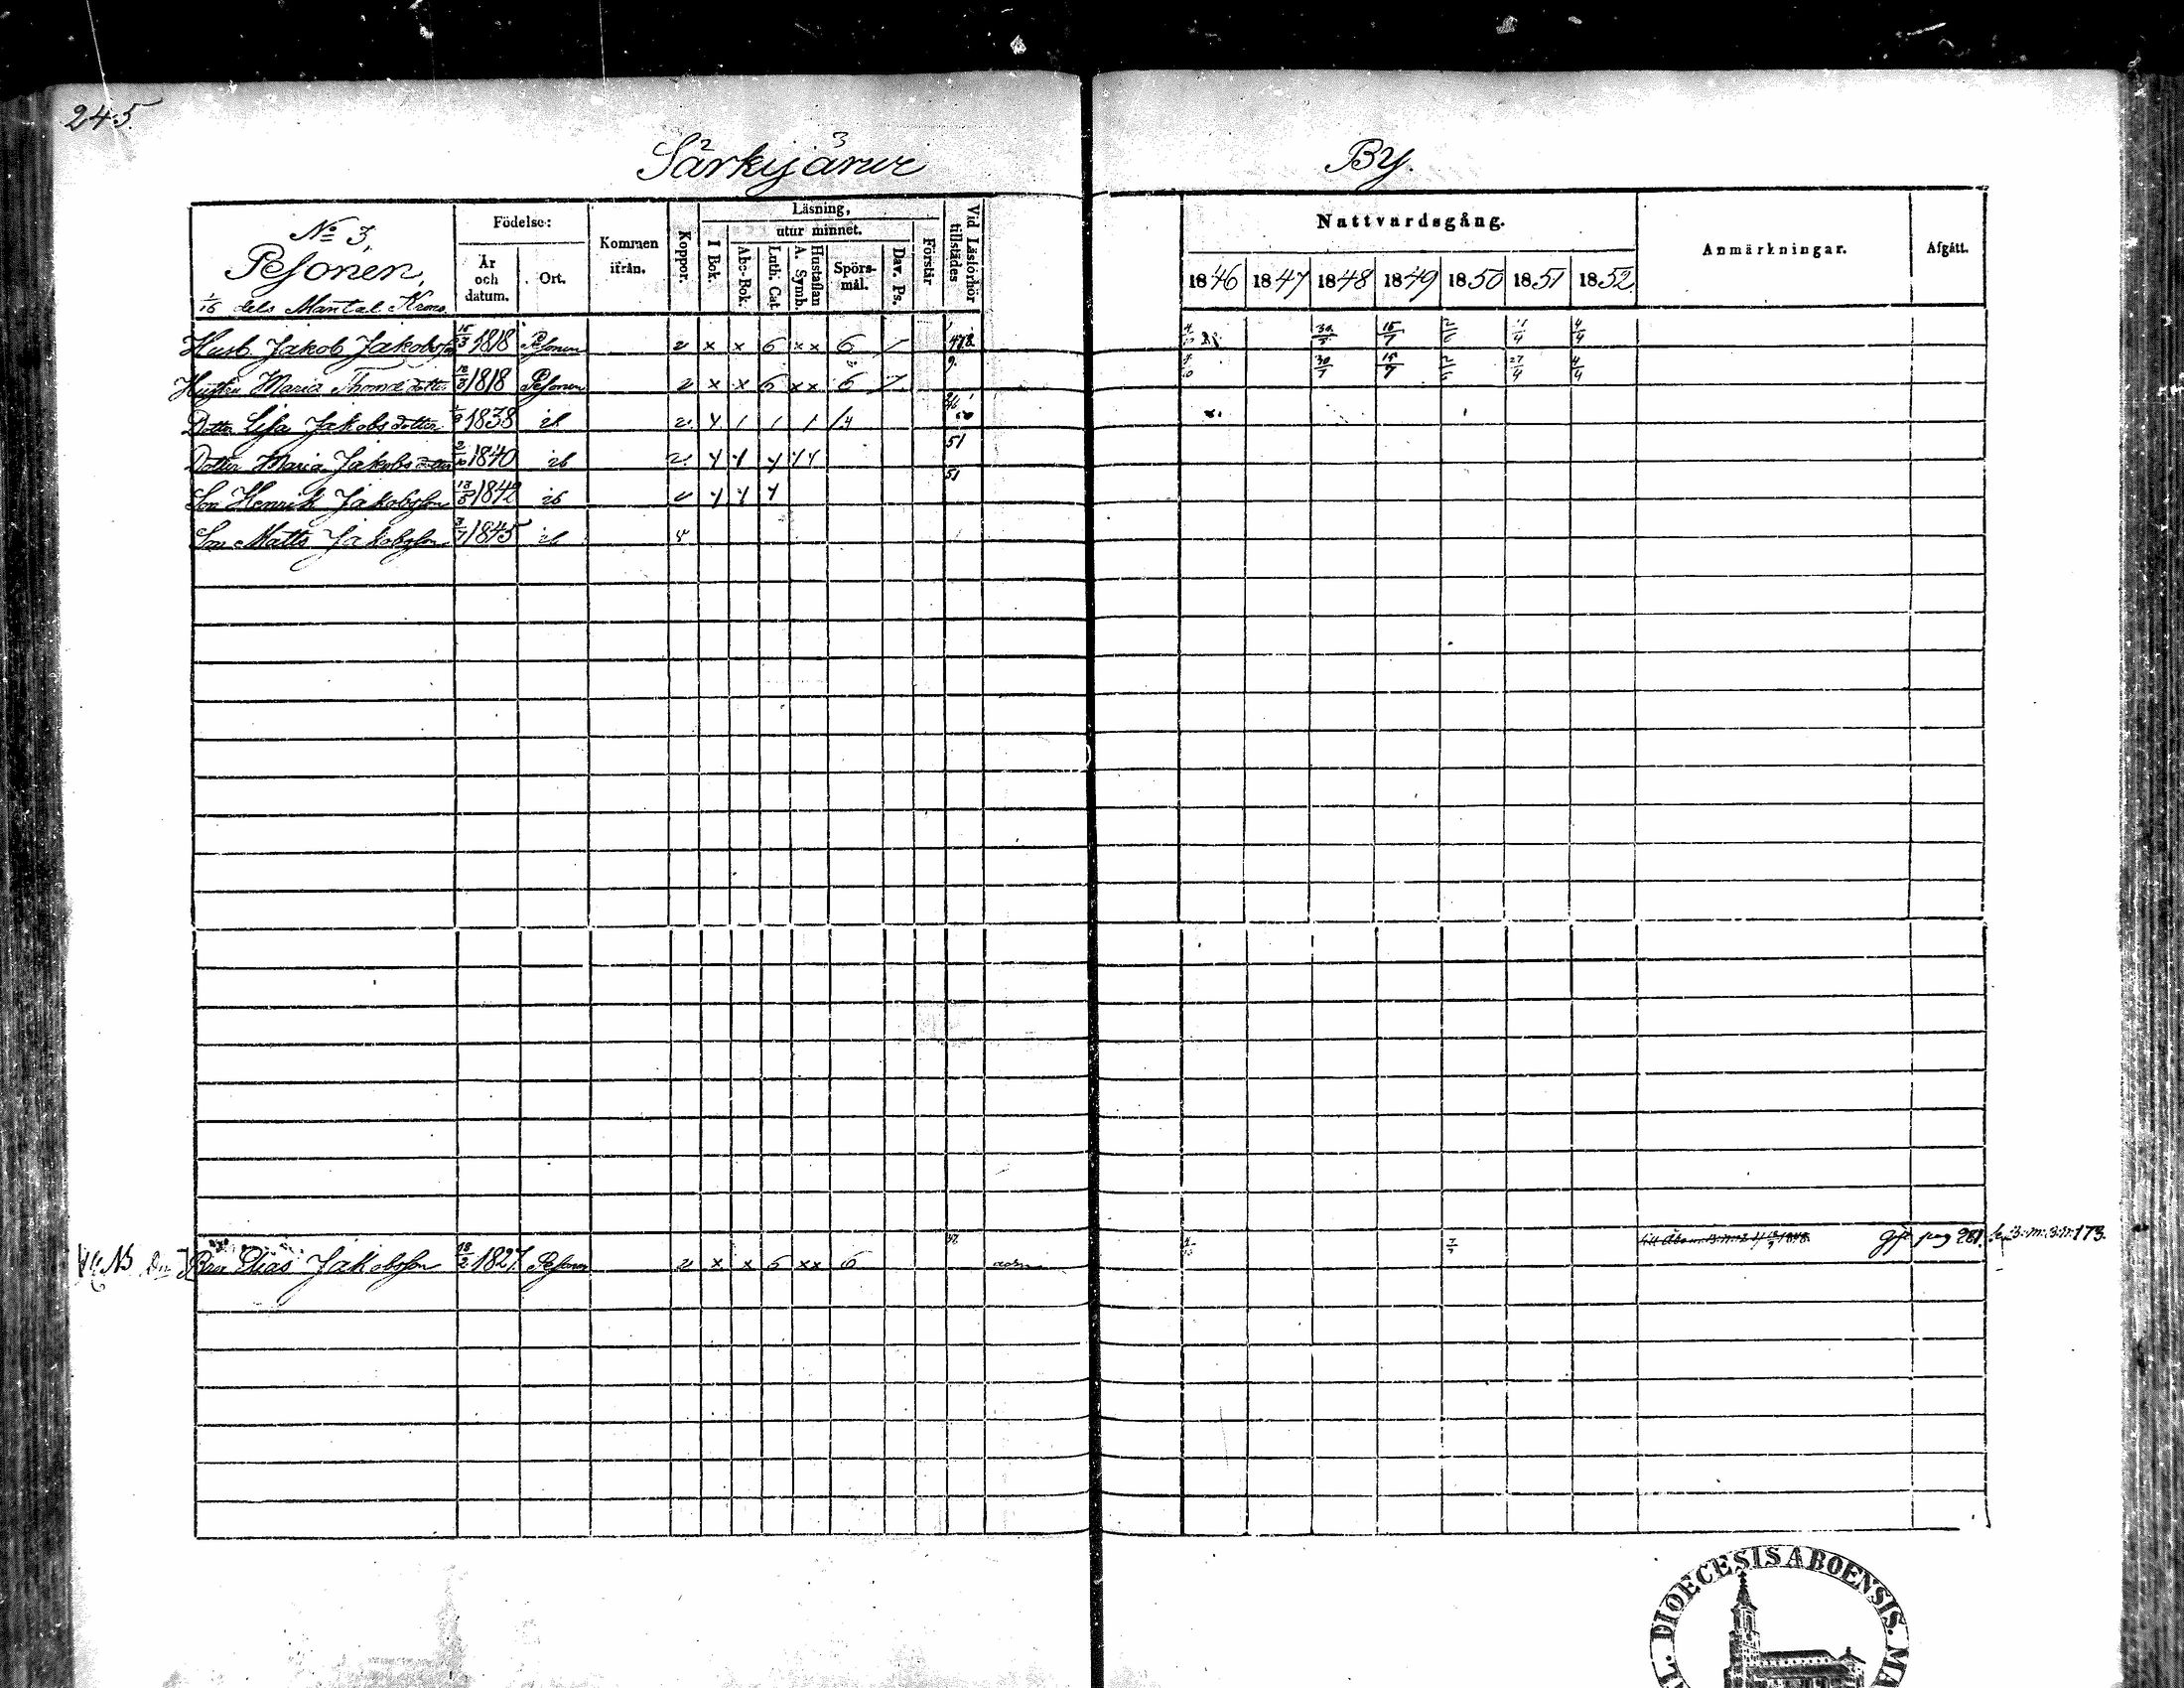 245.
Särkijärvi By.
No 3,
Pesonen,
1/16 dels Mantal Krono
Födelse:
År och datum.
Ort.
Kommen ifrån.
Koppor.
Läsning,
I Bok.
utur minnet.
Abc-Bok.
Luth. Cat.
Hustaflan A. Symb.
Spörsmål.
Dav. Ps.
Förstår
Vid Läsförhör tillstädes
Nattvardsgång.
1846 1847 1848 1849 1850 1851 1852
Anmärkningar.
Afgått.
Husb. Jakob Jakobsson 15/3 1818 Pesonen v x x 6 xx 6 / 478 30/5 15/7 2/6 4/4
Hustru Maria Thomædotter 18/3 1818 Pesonen v x x 6 xx 6 9. 30/7 15/7 2/6 27/4 4/4
Dotter Lisa Jakobsdotter 1838 ib v
Dotter Maria Jakobsdotter 1840 ib v 51
Son Henrik Jakobsson 13/5 1842 ib v 51
Son Matts Jakobsson 3/7 1845 ib
Bror Elias Jakobsson 18/2 1827 Pesonen v x x 6 xx 6 47 7/7 gift pag 281. 173.
DIOECESIS ABOENSIS. MA